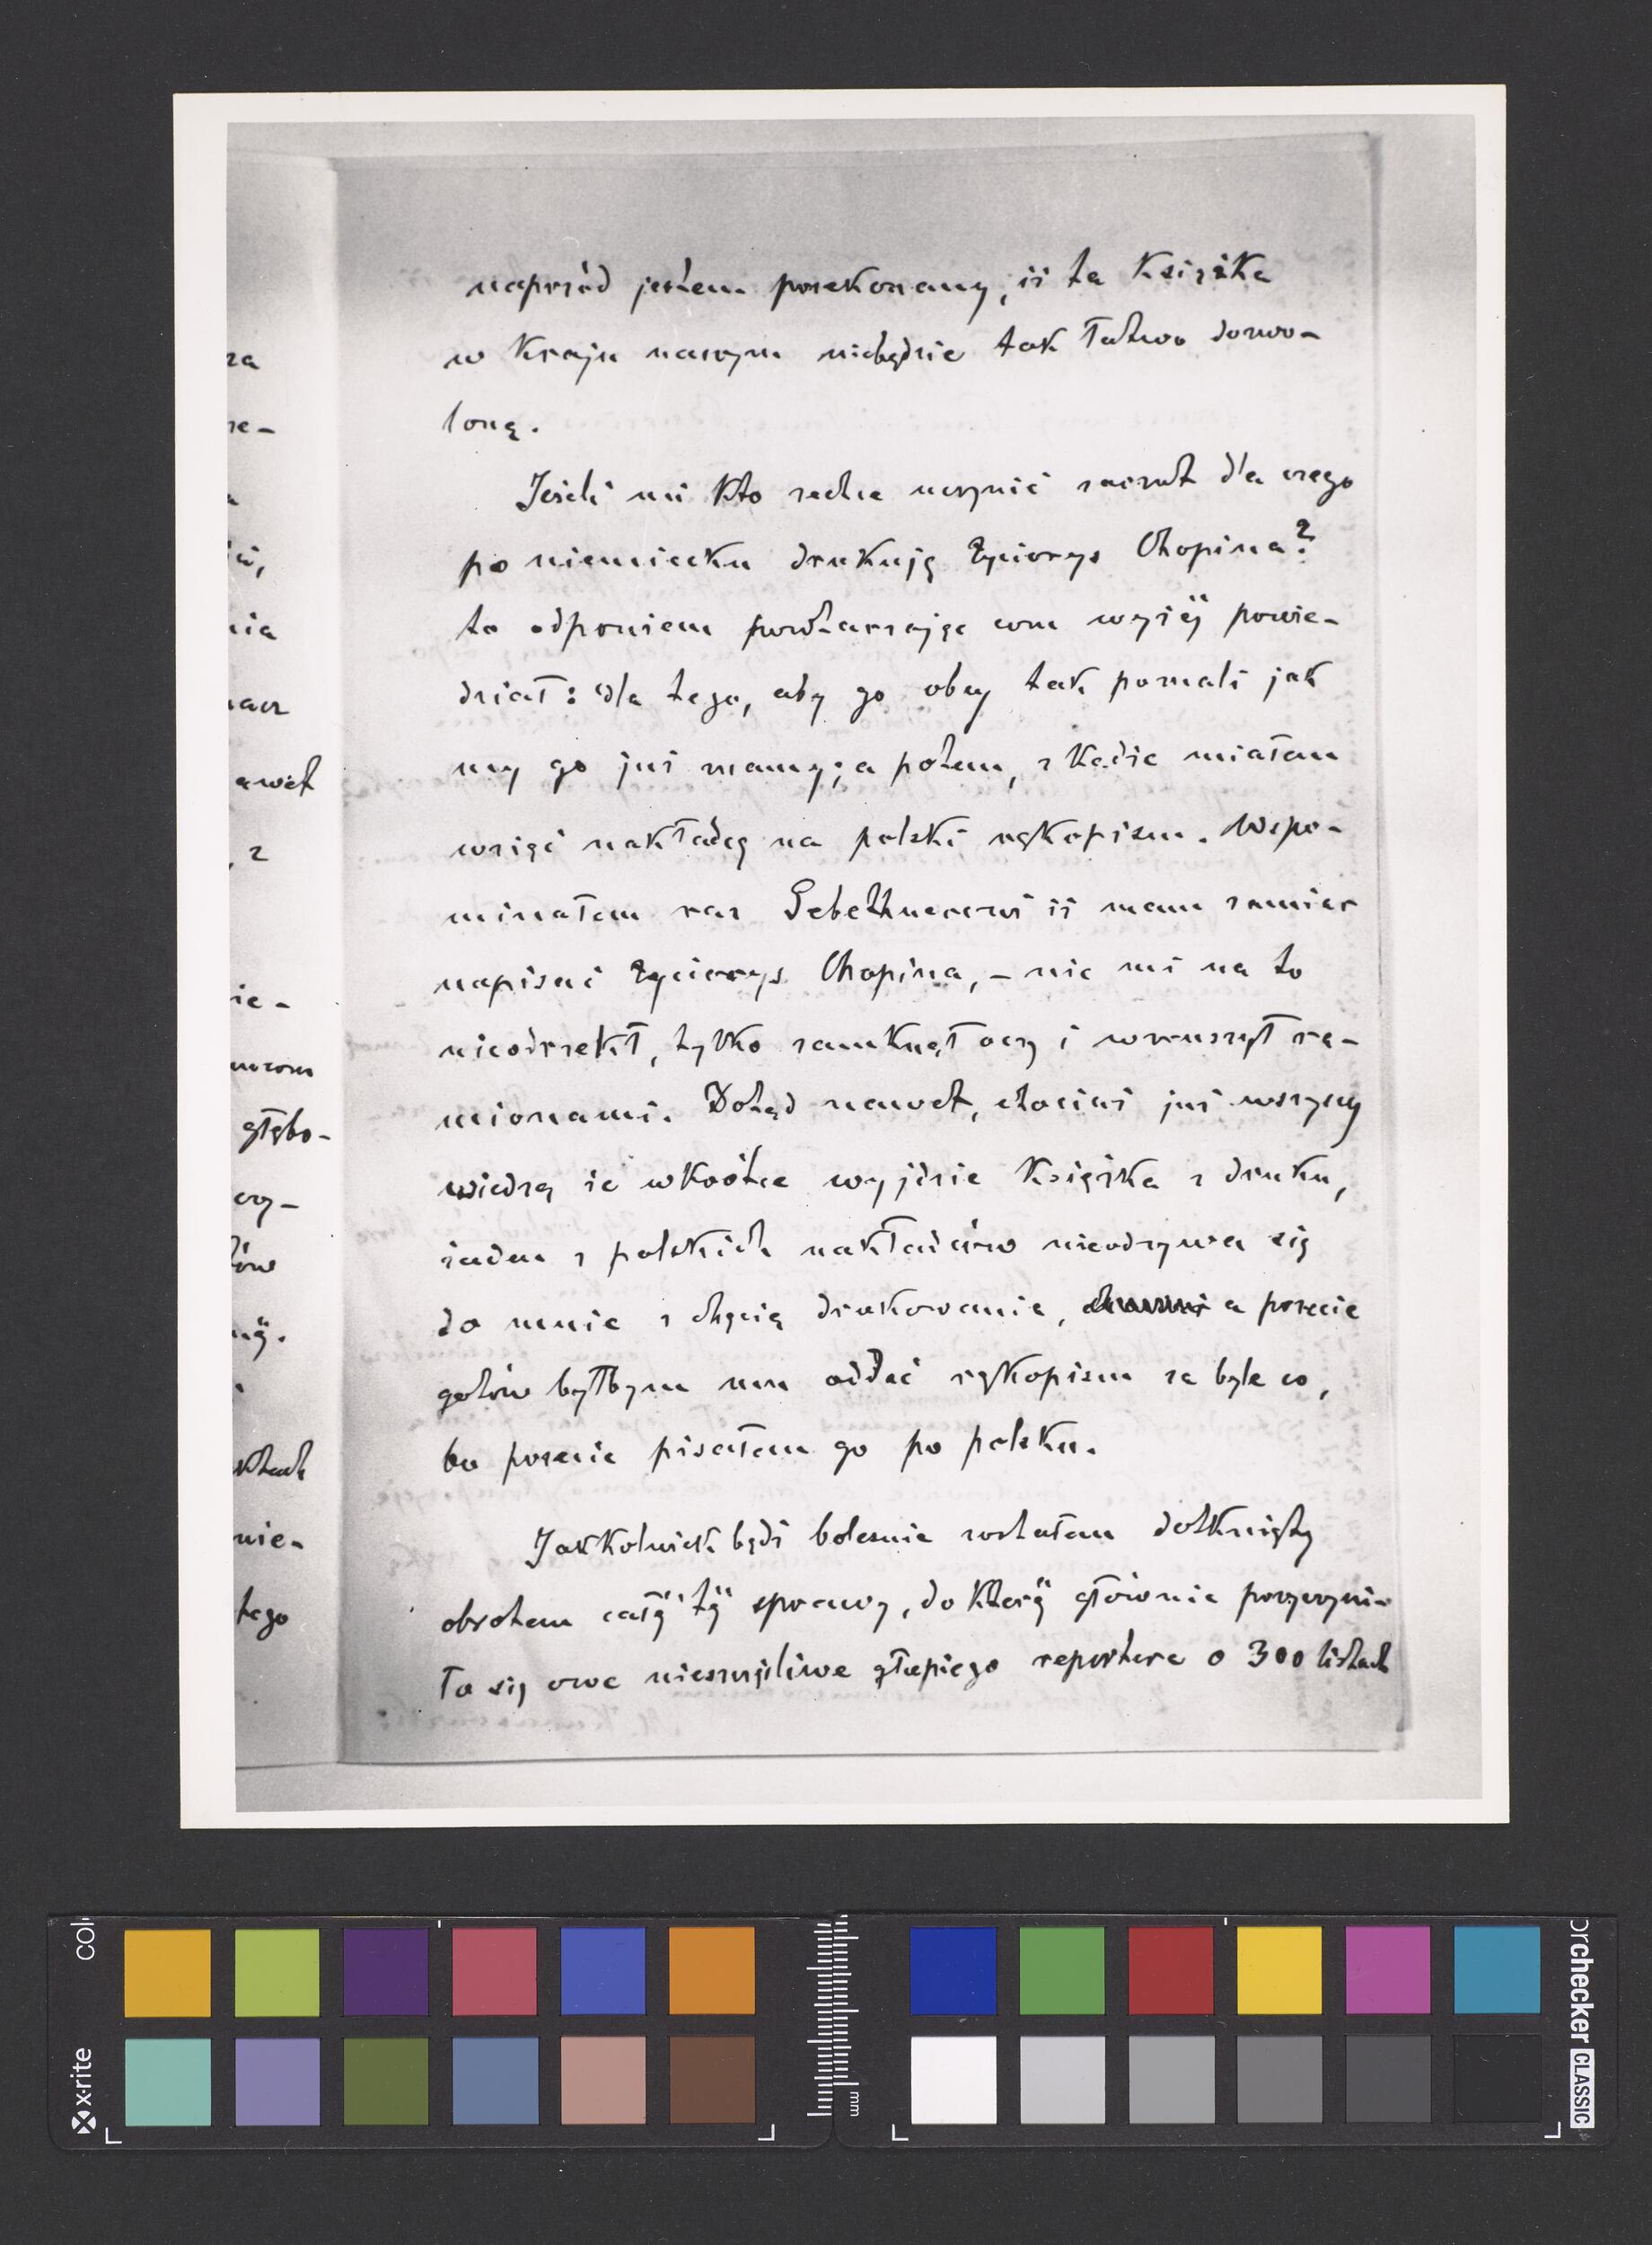 naprzód jestem przekonany, iż ta Książka
w Kraju naszym niebędzie tak łatwo dozwo-
loną.
Jeżeli mi kto zechce uczynić zarzut dla czego
po niemiecku drukuję Życiorys Chopina?
to odpowiem powtarzając com wyżéj powie-
dział: dla tego, aby go obcy tak poznali jak
my go już znamy; a potem, zkądże miałem
wziąć nakładcę na polski rękopism. Wspo-
minałem raz Gebethnerowi iż mam zamiar
napisać Życiorys Chopina, – nic mi na to
nieodrzekł, tylko zamknął oczy i wzruszył ra-
mionami. Dotąd nawet, chociaż już wszyscy
wiedzą że wkrótce wyjdzie Książka z druku,
żaden z polskich nakładców nieodzywa się
do mnie z chęcią drukowania, a przecie
gotów byłbym mu oddać rękopism za byle co,
bo przecie pisałem go po polsku.
Jakkolwiek bądź boleśnie zostałem dotknięty
obrotem całéj téj sprawy, do któréj głównie przyczyni-
ło się owe nieszczęśliwe głupiego reportera o 300 listach
za
re-
nia
nacz
awet
, z
ie-
głębo-
czy-
tów
néj.
ktach
nie-
tego
col
x·rite
mm
orchecker CLASSIC